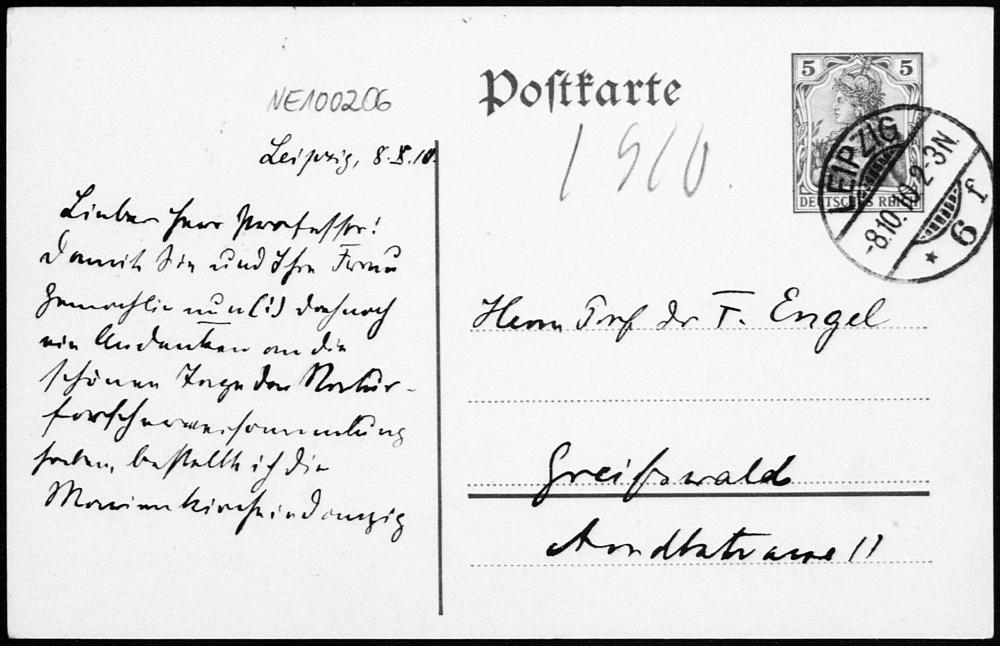 NE100206
Postkarte
1910.
5 5
DEUTSCHES REICH
LEIPZIG
-8.10.10. 2-3N.
* 6 f
Leipzig, 8.X.10.
Lieber Herr Professor!
Damit Sie und Ihre Frau
Gemahlin nun (!) doch noch
ein Andenken an die
schönen Tage der Natur-
forscherversammlung
haben, bestellte ich die
Marienkirche in Danzig
Herrn Prof Dr F. Engel
Greifswald
Arndtstrasse 11